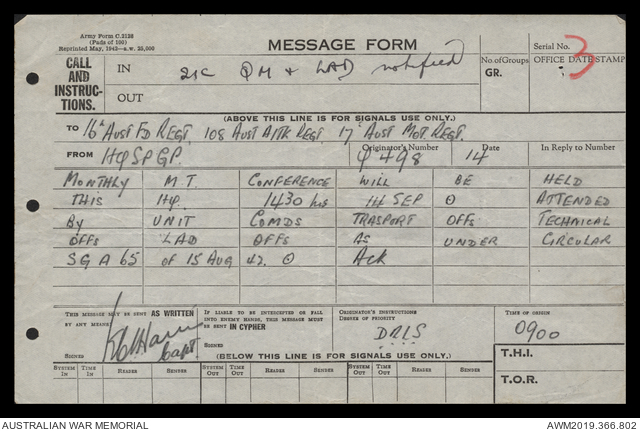 Army Form C.2136
(Pads of 100)
Reprinted May, 1942—a.w. 25,000
MESSAGE FORM
Serial No. 3
CALL AND INSTRUC-TIONS.
IN 2ic QM & LAD notified
No. of Groups GR.
OFFICE DATE STAMP
OUT
(ABOVE THIS LINE IS FOR SIGNALS USE ONLY.)
TO 16 Aust Fd Regt. 108 Aust A/Tk Regt. 17 Aust Mot Regt.
FROM HQ SP GP.
Originator's Number Q498
Date 14
In Reply to Number
MONTHLY MT CONFERENCE WILL BE HELD
THIS HQ. 1430 hrs 14 SEP ⊙ ATTENDED
BY UNIT COMDS TRASPORT OFFS TECHNICAL
OFFS LAD OFFS AS UNDER CIRCULAR
SG A 65 of 15 AUG 42. ⊙ Ack
THIS MESSAGE MAY BE SENT AS WRITTEN BY ANY MEANS
SIGNED Capt
IF LIABLE TO BE INTERCEPTED OR FALL INTO ENEMY HANDS, THIS MESSAGE MUST BE SENT IN CYPHER
SIGNED
ORIGINATOR'S INSTRUCTIONS
DEGREE OF PRIORITY
DRLS
TIME OF ORIGIN
0900
(BELOW THIS LINE IS FOR SIGNALS USE ONLY.)
T.H.I.
SYSTEM IN TIME IN READER SENDER SYSTEM OUT TIME OUT READER SENDER SYSTEM OUT TIME OUT READER SENDER
T.O.R.
AUSTRALIAN WAR MEMORIAL
AWM2019.366.802